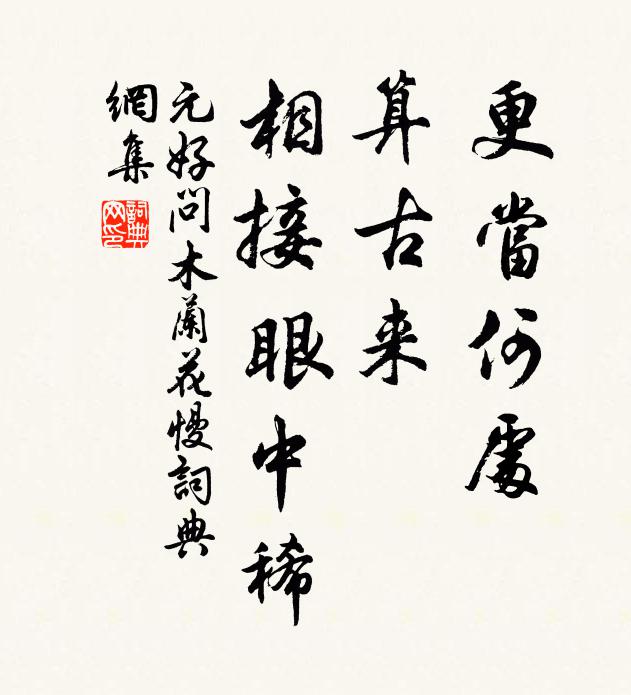 更當何處
算古来
相接眼中稀
元好問木蘭花慢詞典
網集
詞典網印